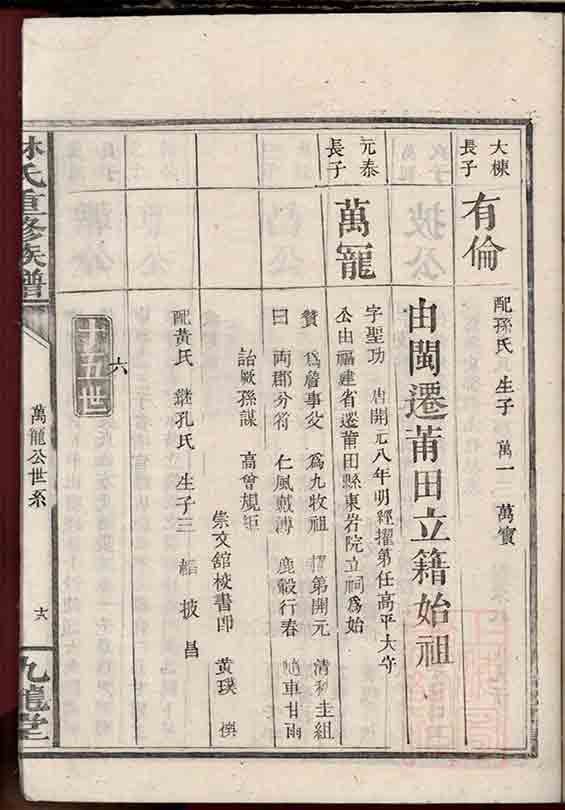 大棟
長子
有倫
配孫氏 生子 萬一 萬寳
由閩遷莆田立籍始祖
元泰
長子
萬寵
字聖功 唐開元八年明經擢第任高平太守
公由福建省遷莆田縣東岩院立祠爲始
贊 爲詹事父 爲九牧祖 擢第開元 清利圭組
曰 兩郡分符 仁風戴溥 鹿轂行春 車甘雨
詒厥孫謀 高曾規矩
崇文舘校書郎 黃璞 僎
配黃氏 繼孔氏 生子三 韜 披 昌
六
十五世
林氏重修族譜
萬寵公世系
九龍堂